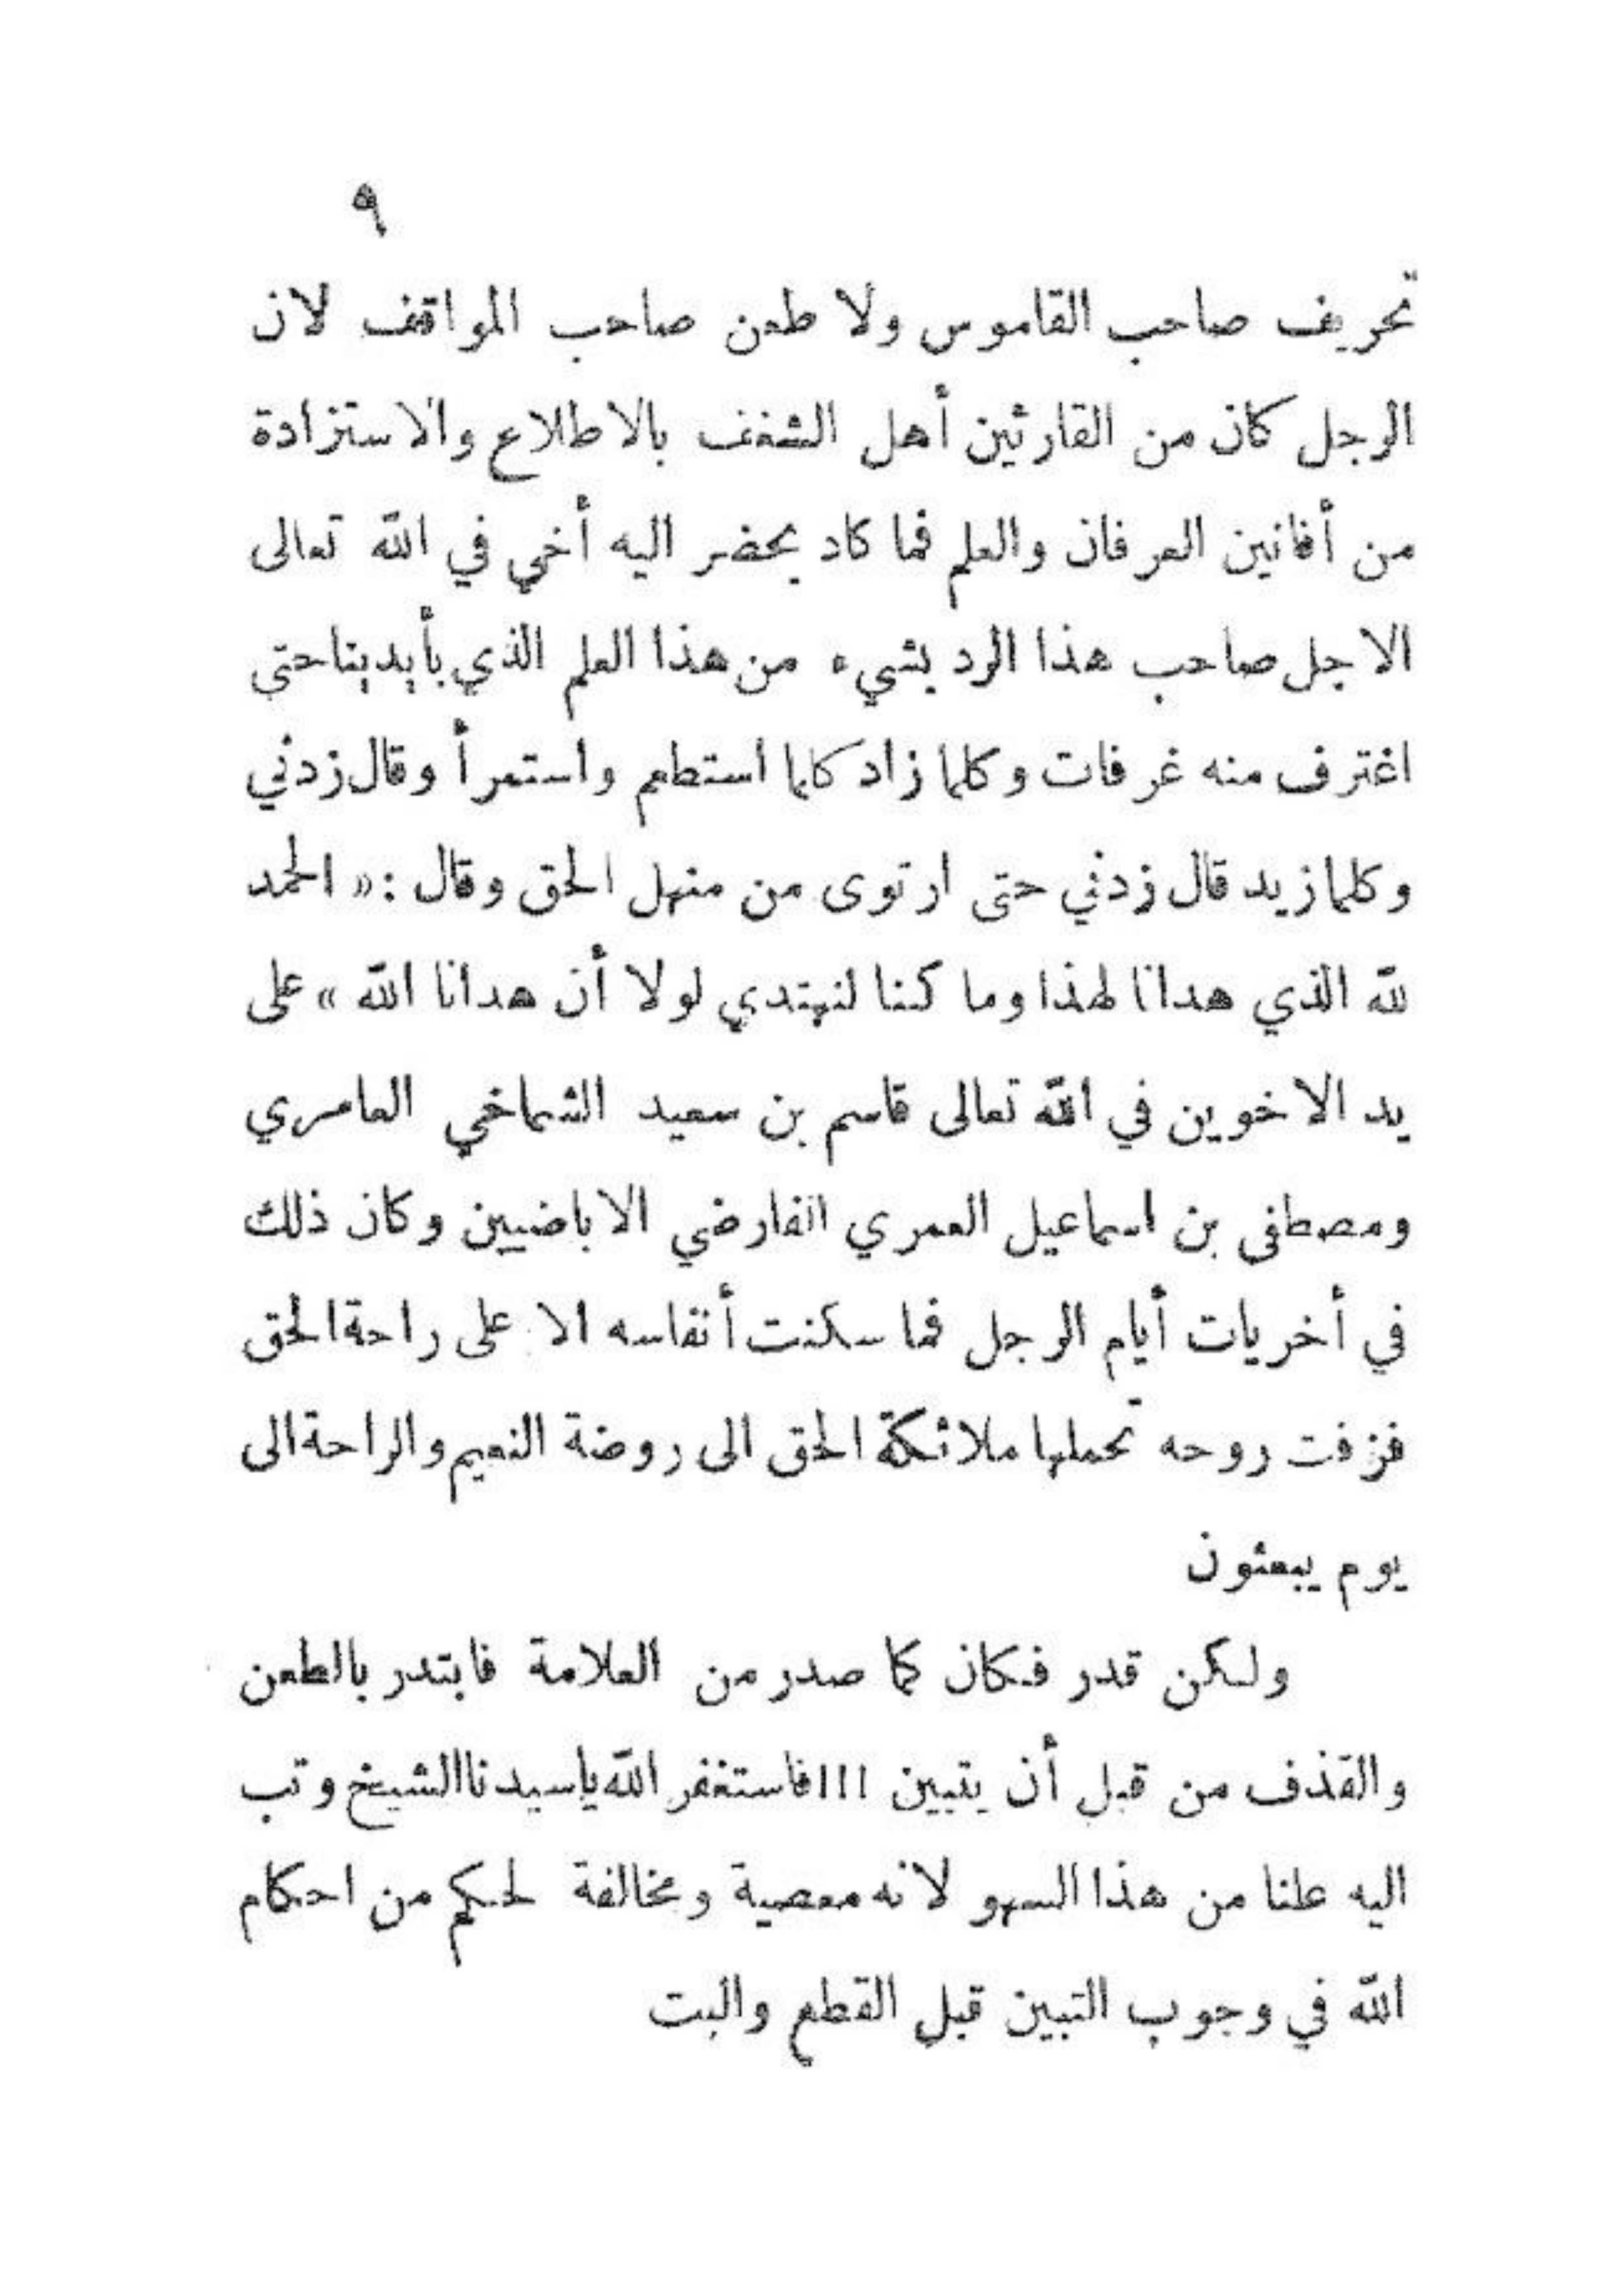 ٩
تحريف صاحب القاموس ولا طعن صاحب المواقف لان
الرجل كان من القارئين أهل الشغف بالاطلاع والاستزادة
من أفانين العرفان والعلم فما كاد يحضر اليه أخي في الله تعالى
الاجل صاحب هذا الرد بشيء من هذا العلم الذي بأيدينا حتى
اغترف منه غرفات وكلما زاد كلما استطعم واستمرأ وقال زدني
وكلما زيد قال زدني حتى ارتوى من منهل الحق وقال : « الحمد
لله الذي هدانا لهذا وما كنا لنهتدي لولا أن هدانا الله » على
يد الاخوين في الله تعالى قاسم بن سعيد الشماخي العامري
ومصطفى بن اسماعيل العمري الفارضي الاباضيين وكان ذلك
في أخريات أيام الرجل فما سكنت أنفاسه الا على راحة الحق
فزفت روحه تحملها ملائكة الحق الى روضة النعيم والراحة الى
يوم يبعثون
ولكن قدر فكان كما صدر من العلامة فابتدر بالطعن
والقذف من قبل أن يتبين !!! فاستغفر الله ياسيدنا الشيخ وتب
اليه علنا من هذا السهو لانه معصية ومخالفة لحكم من احكام
الله في وجوب التبين قبل القطع والبت